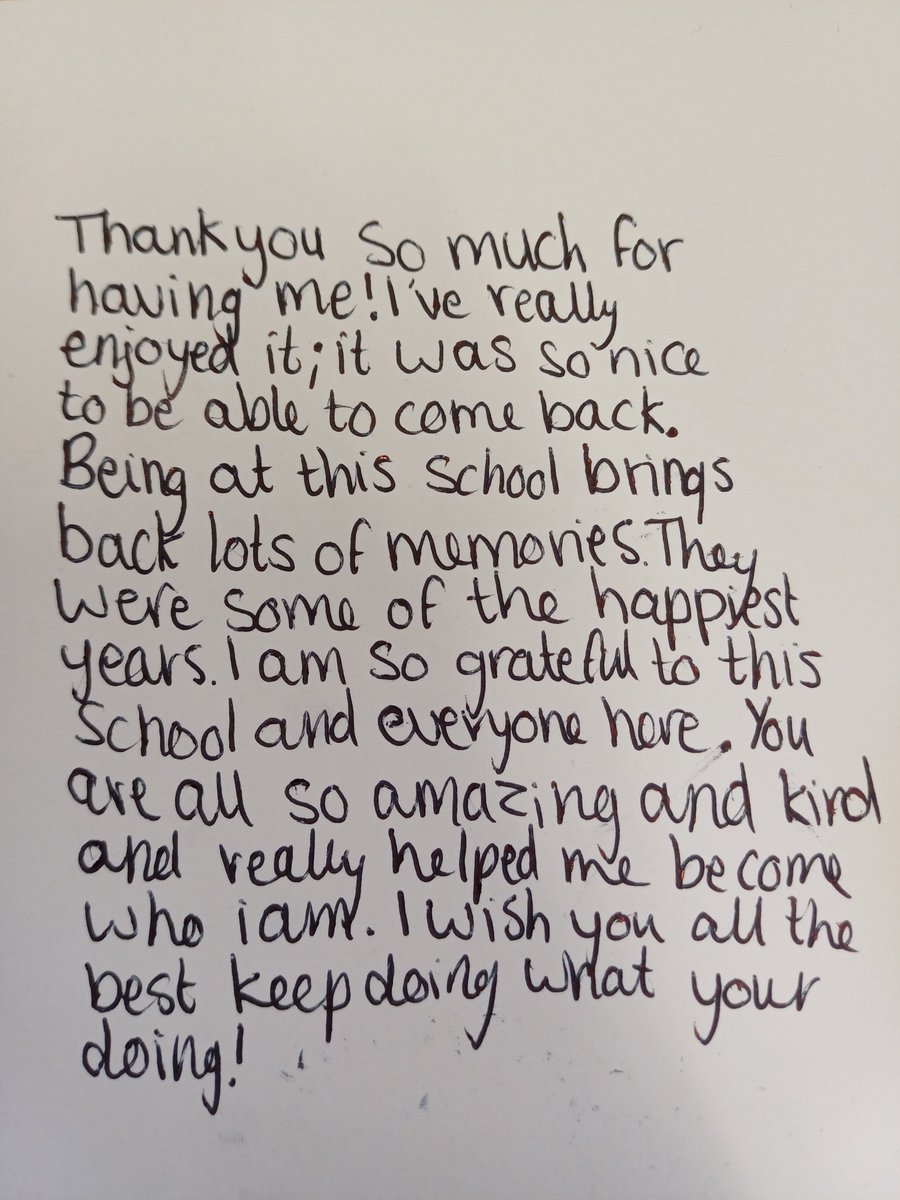 Thank you so much for
having me! I've really
enjoyed it; it was so nice
to be able to come back.
Being at this school brings
back lots of memories. They
were some of the happiest
years. I am so grateful to this
school and everyone here. You
are all so amazing and kind
and really helped me become
who i am. I wish you all the
best keep doing what your
doing!